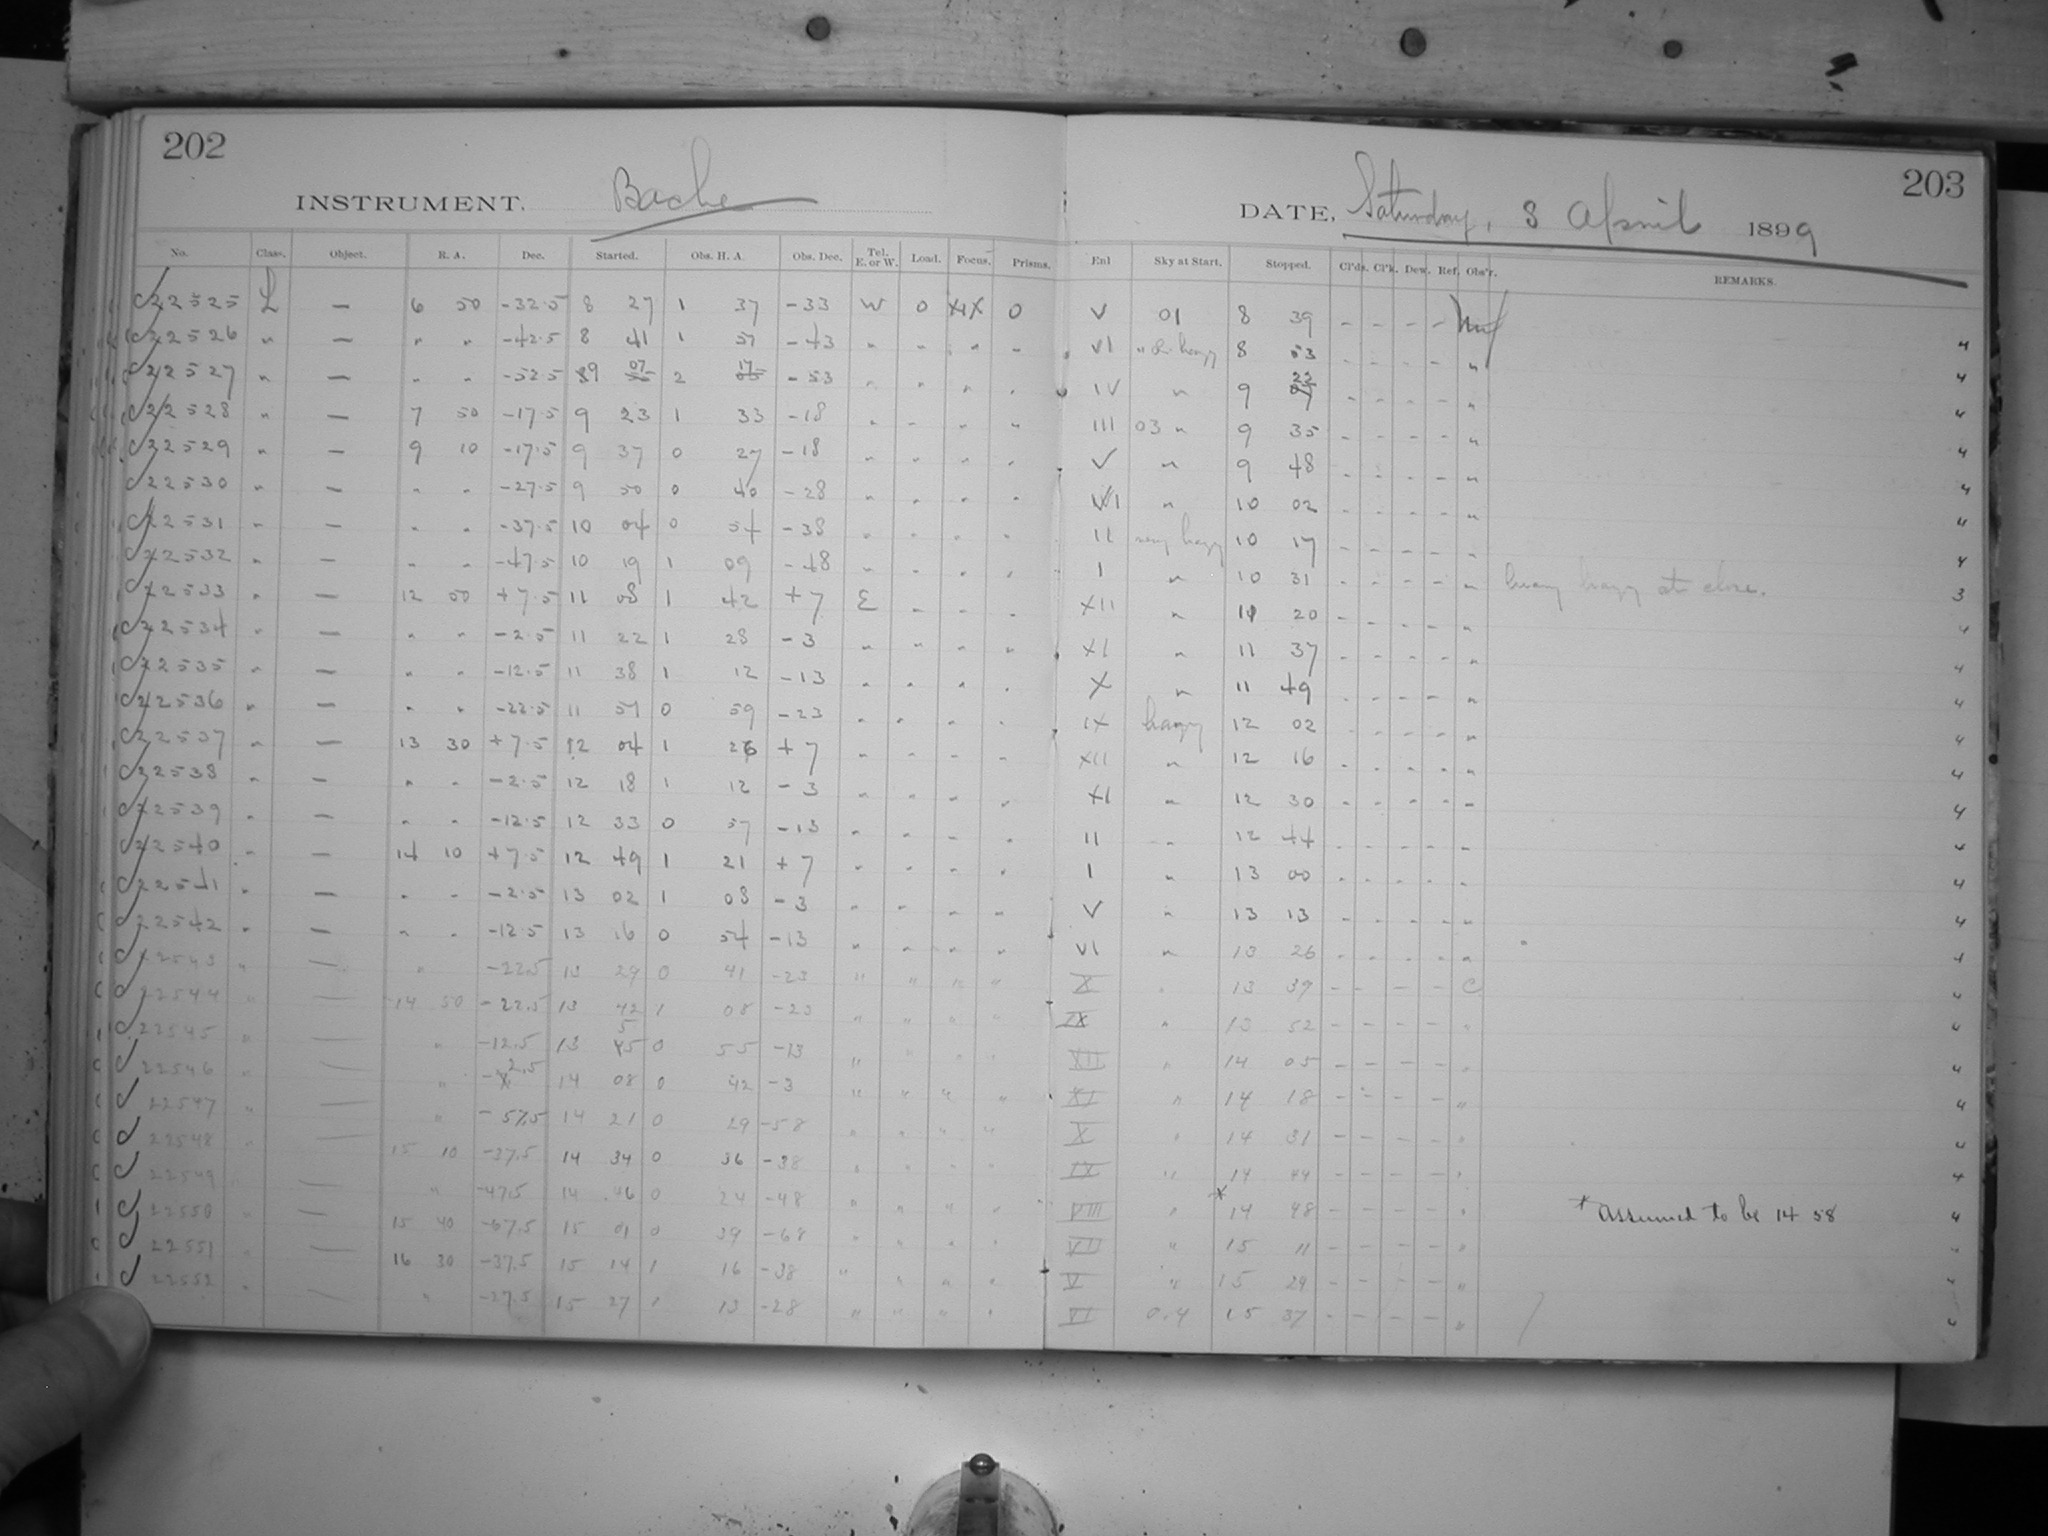 202
203
INSTRUMENT. Bache
DATE, Saturday, 8 April 1899
No. Class. Object. R. A. Dec. Started. Obs. H. A. Obs. Dec. Tel. E. or W. Load. Focus. Prisms. Enl Sky at Start. Stopped. Cl'ds. Cl'k. Dew. Ref. Obs'r. REMARKS.
C22525 L — 6 50 -32.5 8 27 1 37 -33 W 0 0 V 01 8 39 - - - -
C22526 " — " " -42.5 8 41 1 51 -43 " " " " VI " 8 53 - - - - " 4
C22527 " — " " -52.5 9 07 2 17 -53 " " " " IV " 9 22 - - - - " 4
C22528 " — 7 50 -17.5 9 23 1 33 -18 " " " " III 03 " 9 35 - - - - " 4
C22529 " — 9 10 -17.5 9 37 0 27 -18 " " " " V " 9 48 - - - - " 4
C22530 " — " " -27.5 9 50 0 40 -28 " " " " VI " 10 02 - - - - " 4
C22531 " — " " -37.5 10 04 0 54 -38 " " " " II very hazy 10 17 - - - - " 4
C22532 " — " " -47.5 10 19 1 09 -48 " " " " I " 10 31 - - - - " hazy at close. 3
C22533 " — 12 50 +7.5 11 08 1 42 +7 E " " " XII " 11 20 - - - - " 4
C22534 " — " " -2.5 11 22 1 28 -3 " " " " XI " 11 37 - - - - " 4
C22535 " — " " -12.5 11 38 1 12 -13 " " " " X " 11 49 - - - - " 4
C22536 " — " " -22.5 11 51 0 59 -23 " " " " IX hazy 12 02 - - - - " 4
C22537 " — 13 30 +7.5 12 04 1 26 +7 " " " " XII " 12 16 - - - - " 4
C22538 " — " " -2.5 12 18 1 12 -3 " " " " XI " 12 30 - - - - " 4
C22539 " — " " -12.5 12 33 0 57 -13 " " " " II " 12 44 - - - - " 4
C22540 " — 14 10 +7.5 12 49 1 21 +7 " " " " I " 13 00 - - - - " 4
C22541 " — " " -2.5 13 02 1 08 -3 " " " " V " 13 13 - - - - " 4
C22542 " — " " -12.5 13 16 0 54 -13 " " " " VI " 13 26 - - - - " 4
C22543 " — " -22.5 13 29 0 41 -23 " " " " X " 13 39 - - - - C 4
C22544 " — 14 50 -22.5 13 42 1 08 -23 " " " " IX " 13 52 - - - - " 4
C22545 " — " -12.5 13 55 0 55 -13 " " " " XII " 14 05 - - - - " 4
C 22546 " — " -2.5 14 08 0 42 -3 " " " " XI " 14 18 - - - - " 4
C 22547 " — " -57.5 14 21 0 29 -58 " " " " X " 14 31 - - - - " 4
C 22548 " — 15 10 -37.5 14 34 0 36 -38 " " " " IX " 14 44 - - - - " 4
C 22549 — " -47.5 14 46 0 24 -48 " " " " VIII " * 14 48 - - - - " * Assumed to be 14 58 4
C 22550 " — 15 40 -67.5 15 01 0 39 -68 " " " " VII " 15 11 - - - - "
C 22551 — 16 30 -37.5 15 14 1 16 -38 " " " " V " 15 29 - - - - "
C 22552 " — " -27.5 15 27 1 13 -28 " " " " VI 0.4 15 37 - - - - " 4